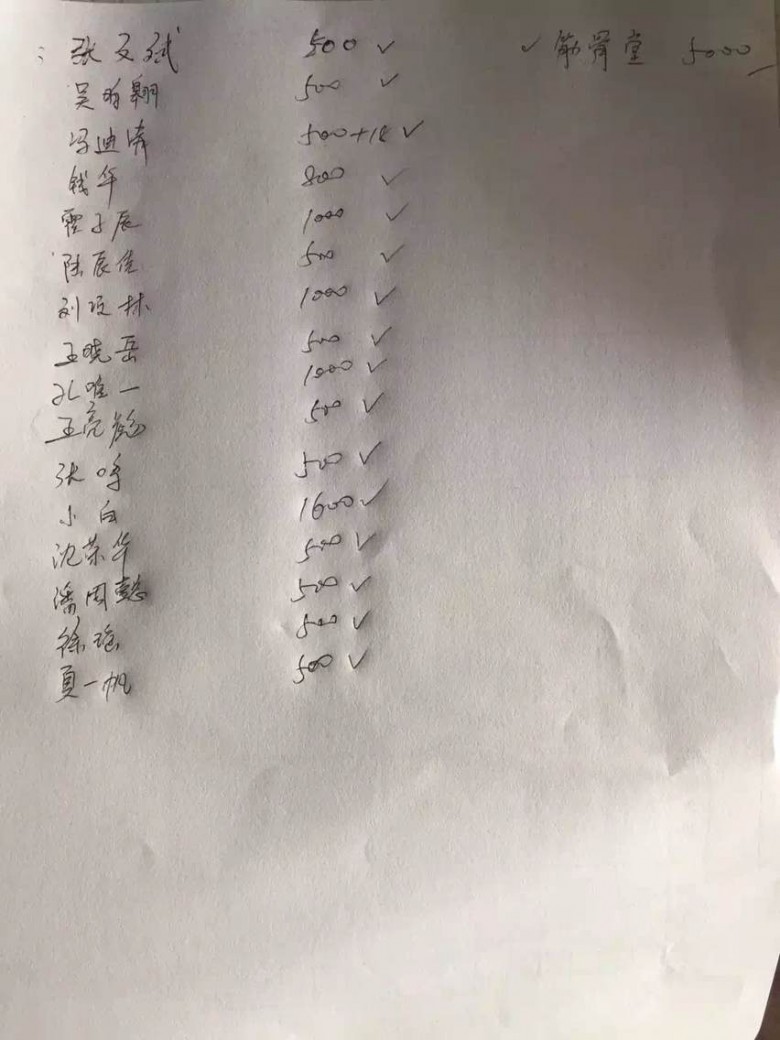 张文斌 500 ✓ ✓ 筋骨堂 5000
吴明翱 500 ✓
冯迪涛 500+1k ✓
钱华 800 ✓
霍子辰 1000 ✓
陆辰佳 500 ✓
刘项林 1000 ✓
王晓岳 500 ✓
孔唯一 1000 ✓
王亮 500 ✓
张 500 ✓
小白 1600 ✓
沈荣华 500 ✓
潘国懿 500 ✓
徐瑶 500 ✓
夏一帆 500 ✓